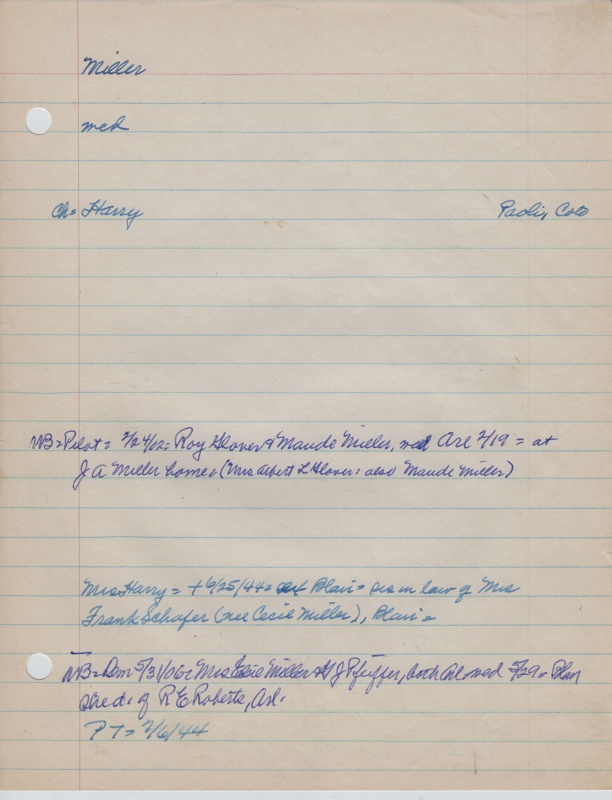 Miller
med
Ch= Harry Paoli, Colo
NB=Pilot= 2/24/02= Roy Glover & Maude Miller, med Arl 2/19 = at
J A Miller home= (Mrs Albert L Glover: also Maude Miller)
Mrs Harry = +6/25/44= Blair= sis in law of Mrs
Frank Schafer (nee Cecil Miller), Blair=
NB=Dem 5/31/06= Mrs Miller & J Pfeiffer, both Arl med 5/29= Blair
of R E Roberts, Arl.
PT= 2/6/44